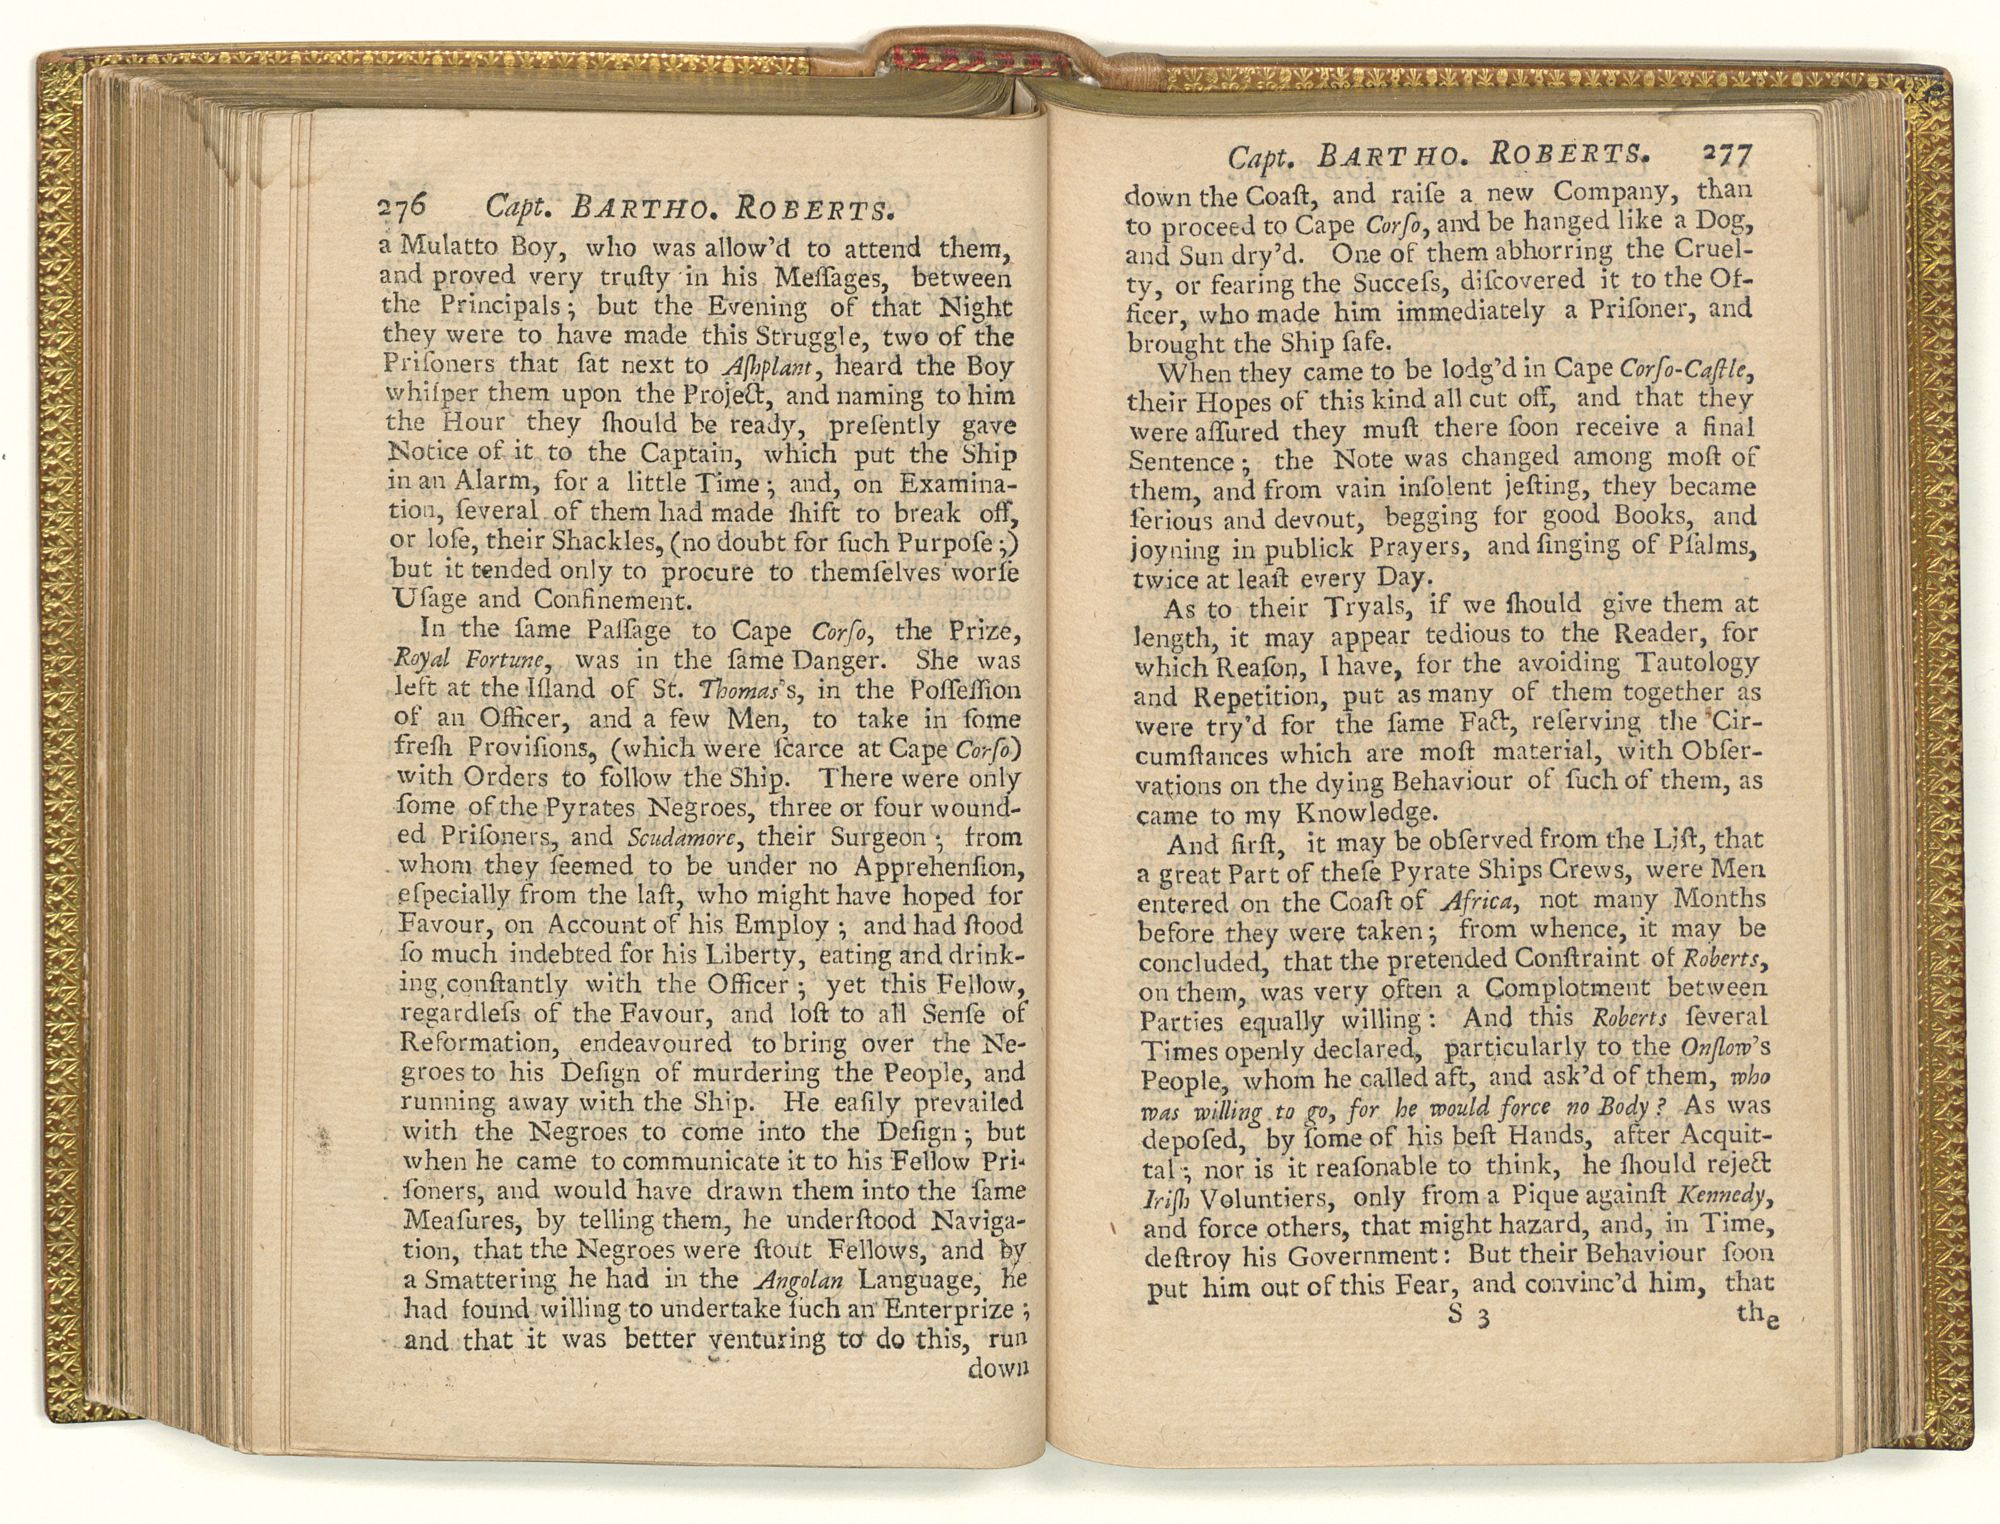 276 Capt. BARTHO. ROBERTS.
a Mulatto Boy, who was allow'd to attend them,
and proved very truſty in his Meſſages, between
the Principals; but the Evening of that Night
they were to have made this Struggle, two of the
Priſoners that ſat next to Aſhplant, heard the Boy
whiſper them upon the Project, and naming to him
the Hour they ſhould be ready, preſently gave
Notice of it to the Captain, which put the Ship
in an Alarm, for a little Time; and, on Examina-
tion, ſeveral of them had made ſhift to break off,
or loſe, their Shackles, (no doubt for ſuch Purpoſe;)
but it tended only to procure to themſelves worſe
Uſage and Confinement.
In the ſame Paſſage to Cape Corſo, the Prize,
Royal Fortune, was in the ſame Danger. She was
left at the Iſland of St. Thomas's, in the Poſſeſſion
of an Officer, and a few Men, to take in ſome
freſh Proviſions, (which were ſcarce at Cape Corſo)
with Orders to follow the Ship. There were only
ſome of the Pyrates Negroes, three or four wound-
ed Priſoners, and Scudamore, their Surgeon; from
whom they ſeemed to be under no Apprehenſion,
eſpecially from the laſt, who might have hoped for
Favour, on Account of his Employ; and had ſtood
ſo much indebted for his Liberty, eating and drink-
ing conſtantly with the Officer; yet this Fellow,
regardleſs of the Favour, and loſt to all Senſe of
Reformation, endeavoured to bring over the Ne-
groes to his Deſign of murdering the People, and
running away with the Ship. He eaſily prevailed
with the Negroes to come into the Deſign; but
when he came to communicate it to his Fellow Pri-
ſoners, and would have drawn them into the ſame
Meaſures, by telling them, he underſtood Naviga-
tion, that the Negroes were ſtout Fellows, and by
a Smattering he had in the Angolan Language, he
had found willing to undertake ſuch an Enterprize;
and that it was better venturing to do this, run
down
Capt. BARTHO. ROBERTS. 277
down the Coaſt, and raiſe a new Company, than
to proceed to Cape Corſo, and be hanged like a Dog,
and Sun dry'd. One of them abhorring the Cruel-
ty, or fearing the Succeſs, diſcovered it to the Of-
ficer, who made him immediately a Priſoner, and
brought the Ship ſafe.
When they came to be lodg'd in Cape Corſo-Caſtle,
their Hopes of this kind all cut off, and that they
were aſſured they muſt there ſoon receive a final
Sentence; the Note was changed among moſt of
them, and from vain inſolent jeſting, they became
ſerious and devout, begging for good Books, and
joyning in publick Prayers, and ſinging of Pſalms,
twice at leaſt every Day.
As to their Tryals, if we ſhould give them at
length, it may appear tedious to the Reader, for
which Reaſon, I have, for the avoiding Tautology
and Repetition, put as many of them together as
were try'd for the ſame Fact, reſerving the Cir-
cumſtances which are moſt material, with Obſer-
vations on the dying Behaviour of ſuch of them, as
came to my Knowledge.
And firſt, it may be obſerved from the Liſt, that
a great Part of theſe Pyrate Ships Crews, were Men
entered on the Coaſt of Africa, not many Months
before they were taken; from whence, it may be
concluded, that the pretended Conſtraint of Roberts,
on them, was very often a Complotment between
Parties equally willing: And this Roberts ſeveral
Times openly declared, particularly to the Onſlow's
People, whom he called aft, and ask'd of them, who
was willing to go, for he would force no Body? As was
depoſed, by ſome of his beſt Hands, after Acquit-
tal; nor is it reaſonable to think, he ſhould reject
Iriſh Voluntiers, only from a Pique againſt Kennedy,
and force others, that might hazard, and, in Time,
deſtroy his Government: But their Behaviour ſoon
put him out of this Fear, and convinc'd him, that
S 3 the